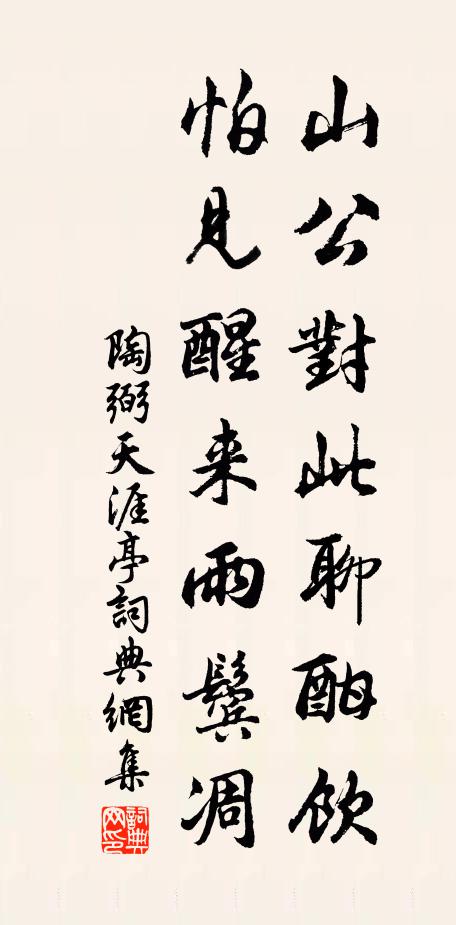 山公對此聊酣飲
怕見醒来雨鬓凋
陶弼天涯亭詞典網集
詞典网印